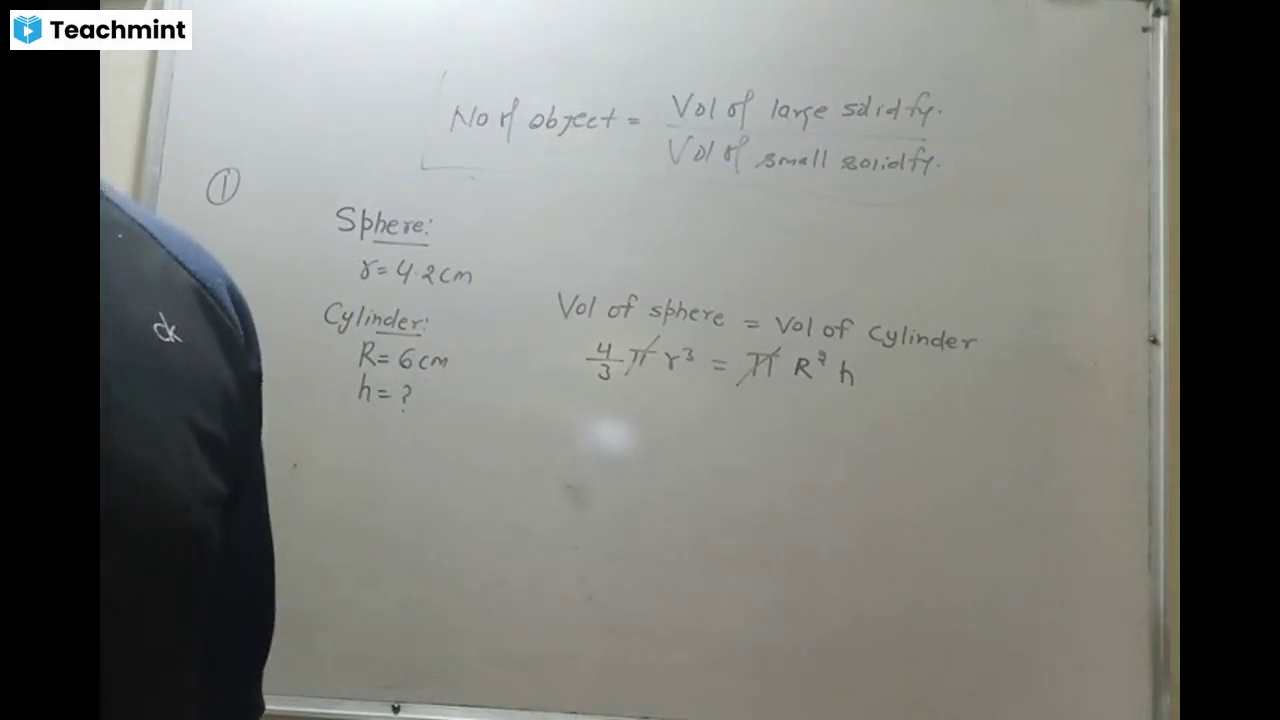 Teachmint
No of object = Vol of large solid fy.
Vol of small solid fy.
①
Sphere:
r = 4.2 cm
Cylinder:
R = 6 cm
h = ?
Vol of sphere = Vol of cylinder
4/3 π r³ = π R² h
ck